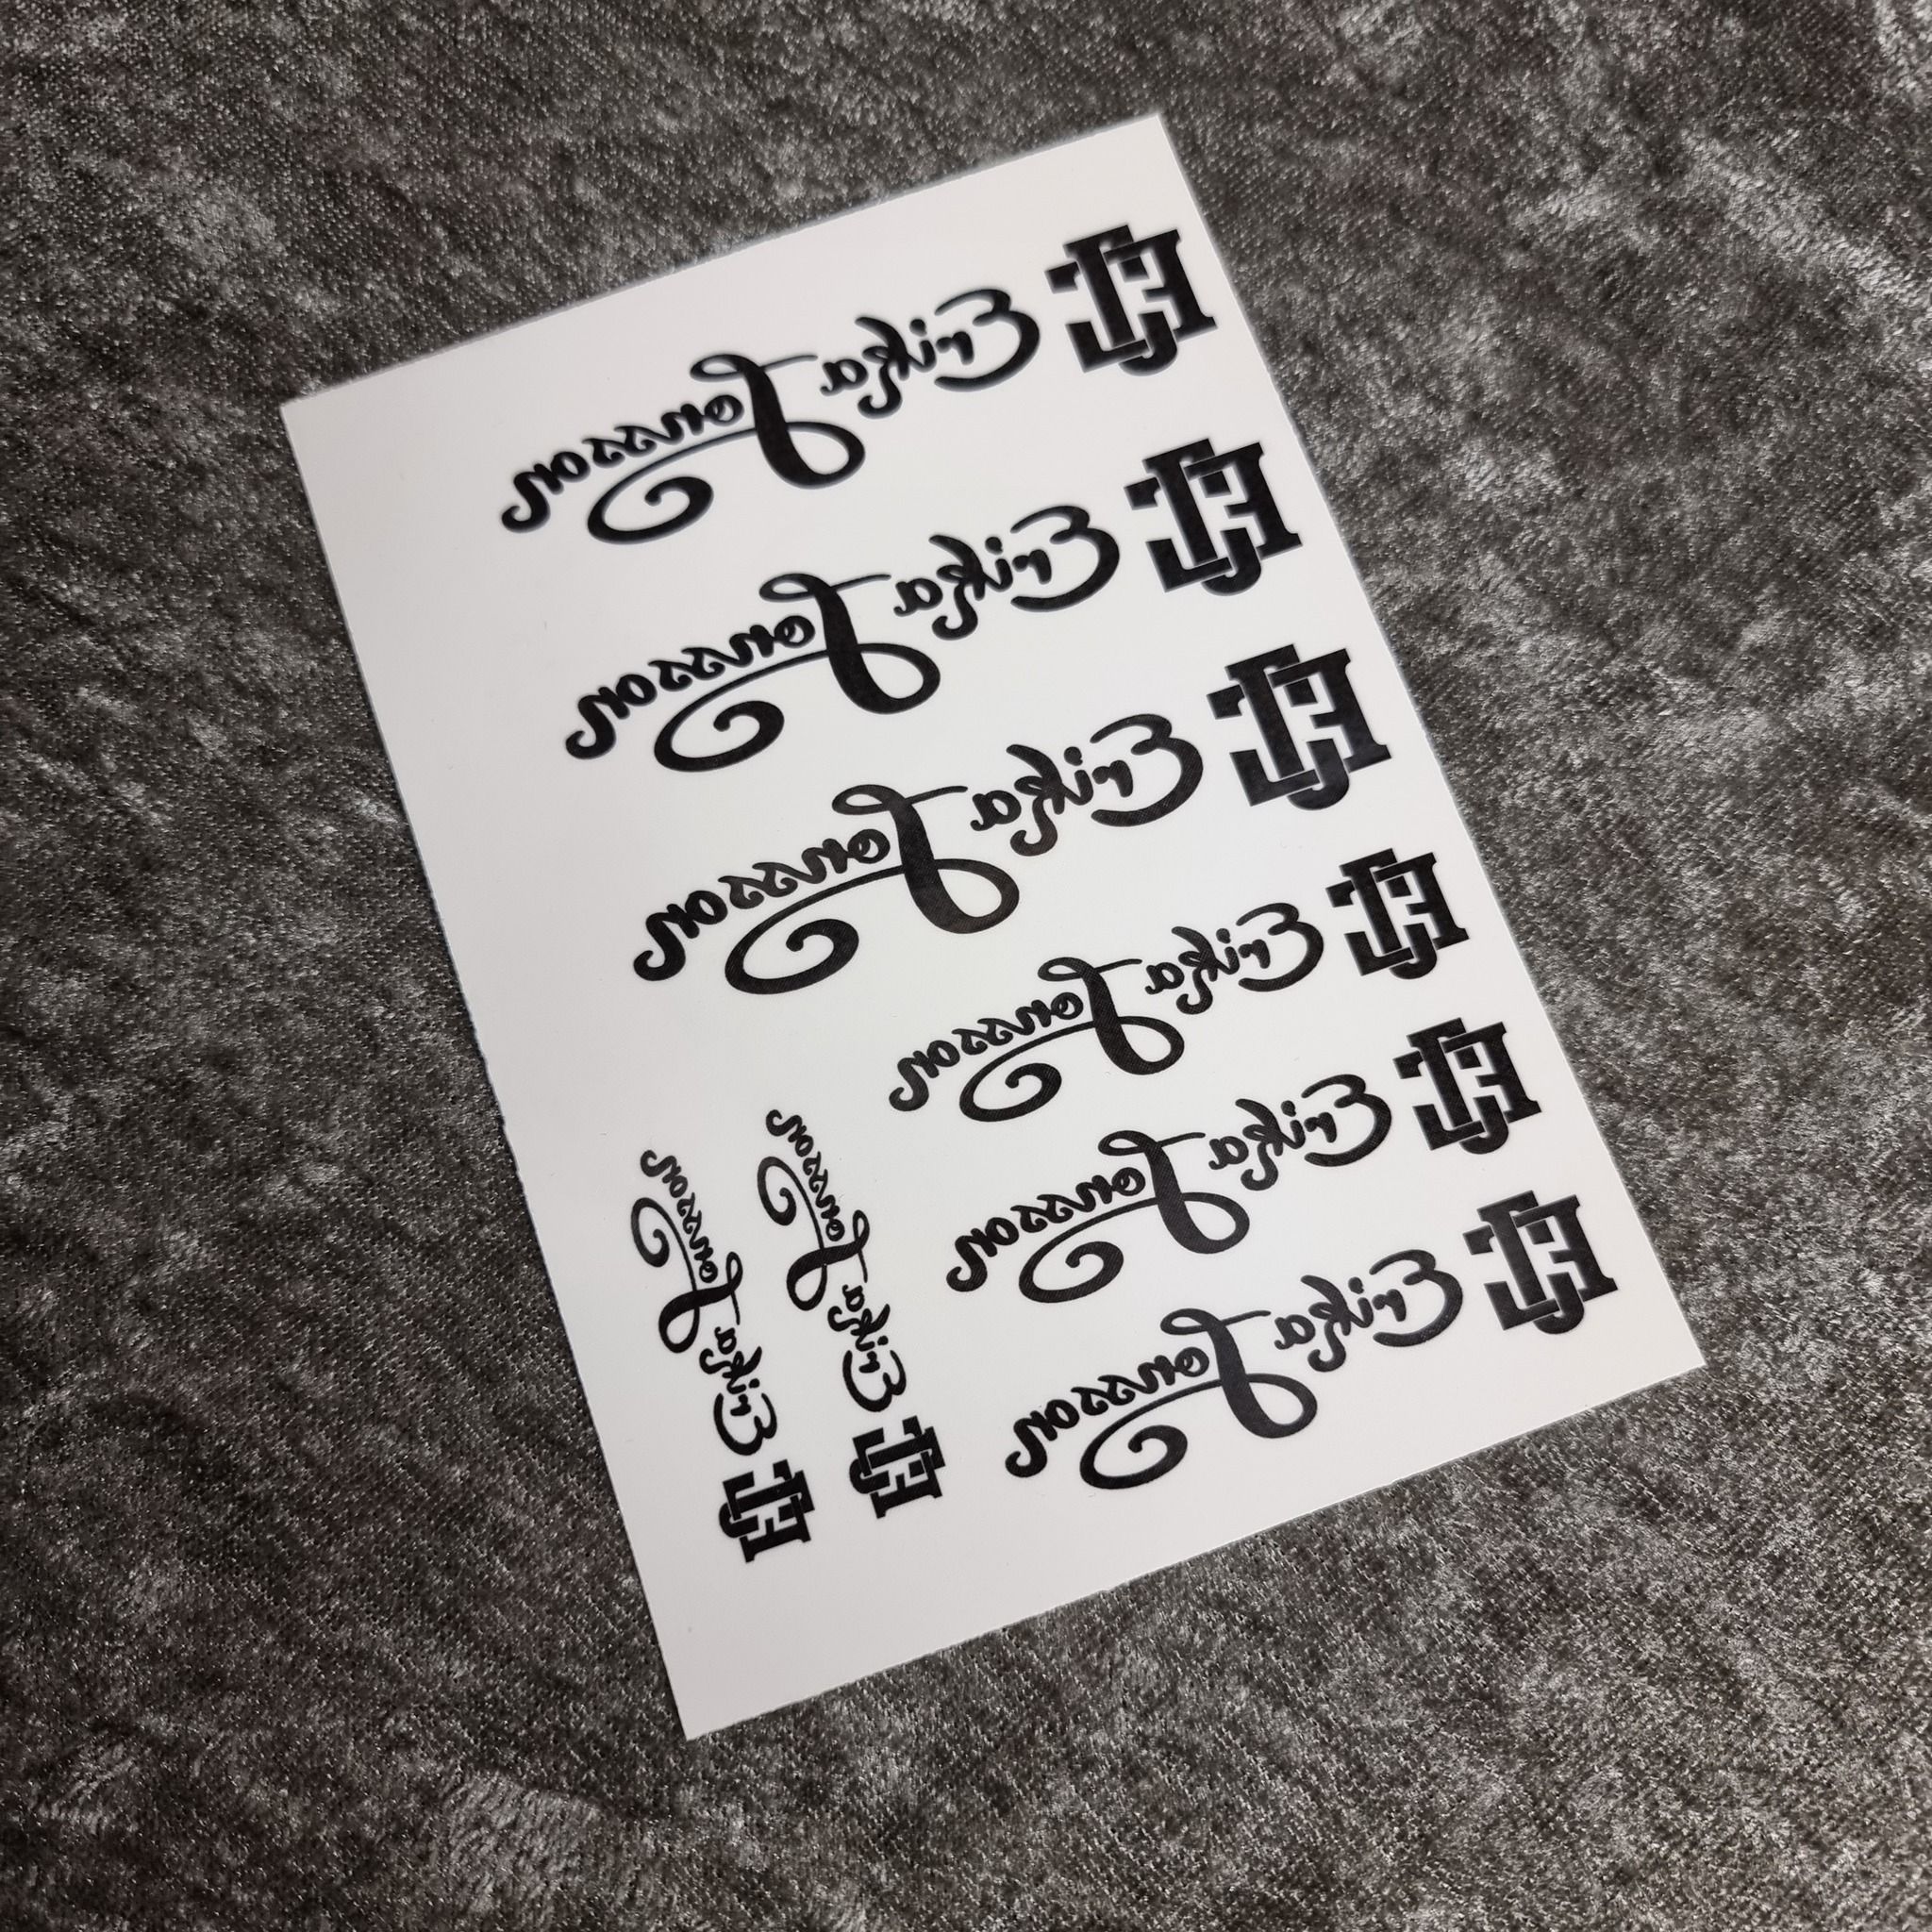 EJ Erika Jonsson
EJ Erika Jonsson
EJ Erika Jonsson
EJ Erika Jonsson
EJ Erika Jonsson
EJ Erika Jonsson
EJ Erika Jonsson
EJ Erika Jonsson